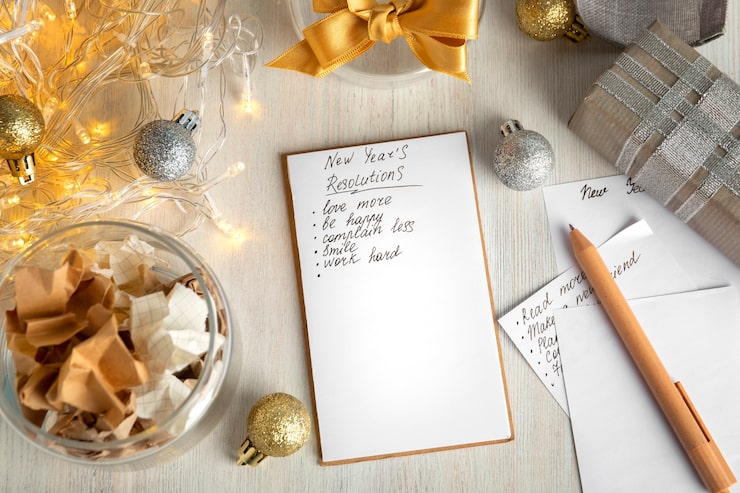 New Year's
Resolutions
• love more
• be happy
• complain less
• smile
• work hard
•
New Yea
• Read more
• Make a new friend
• Plan
• Co